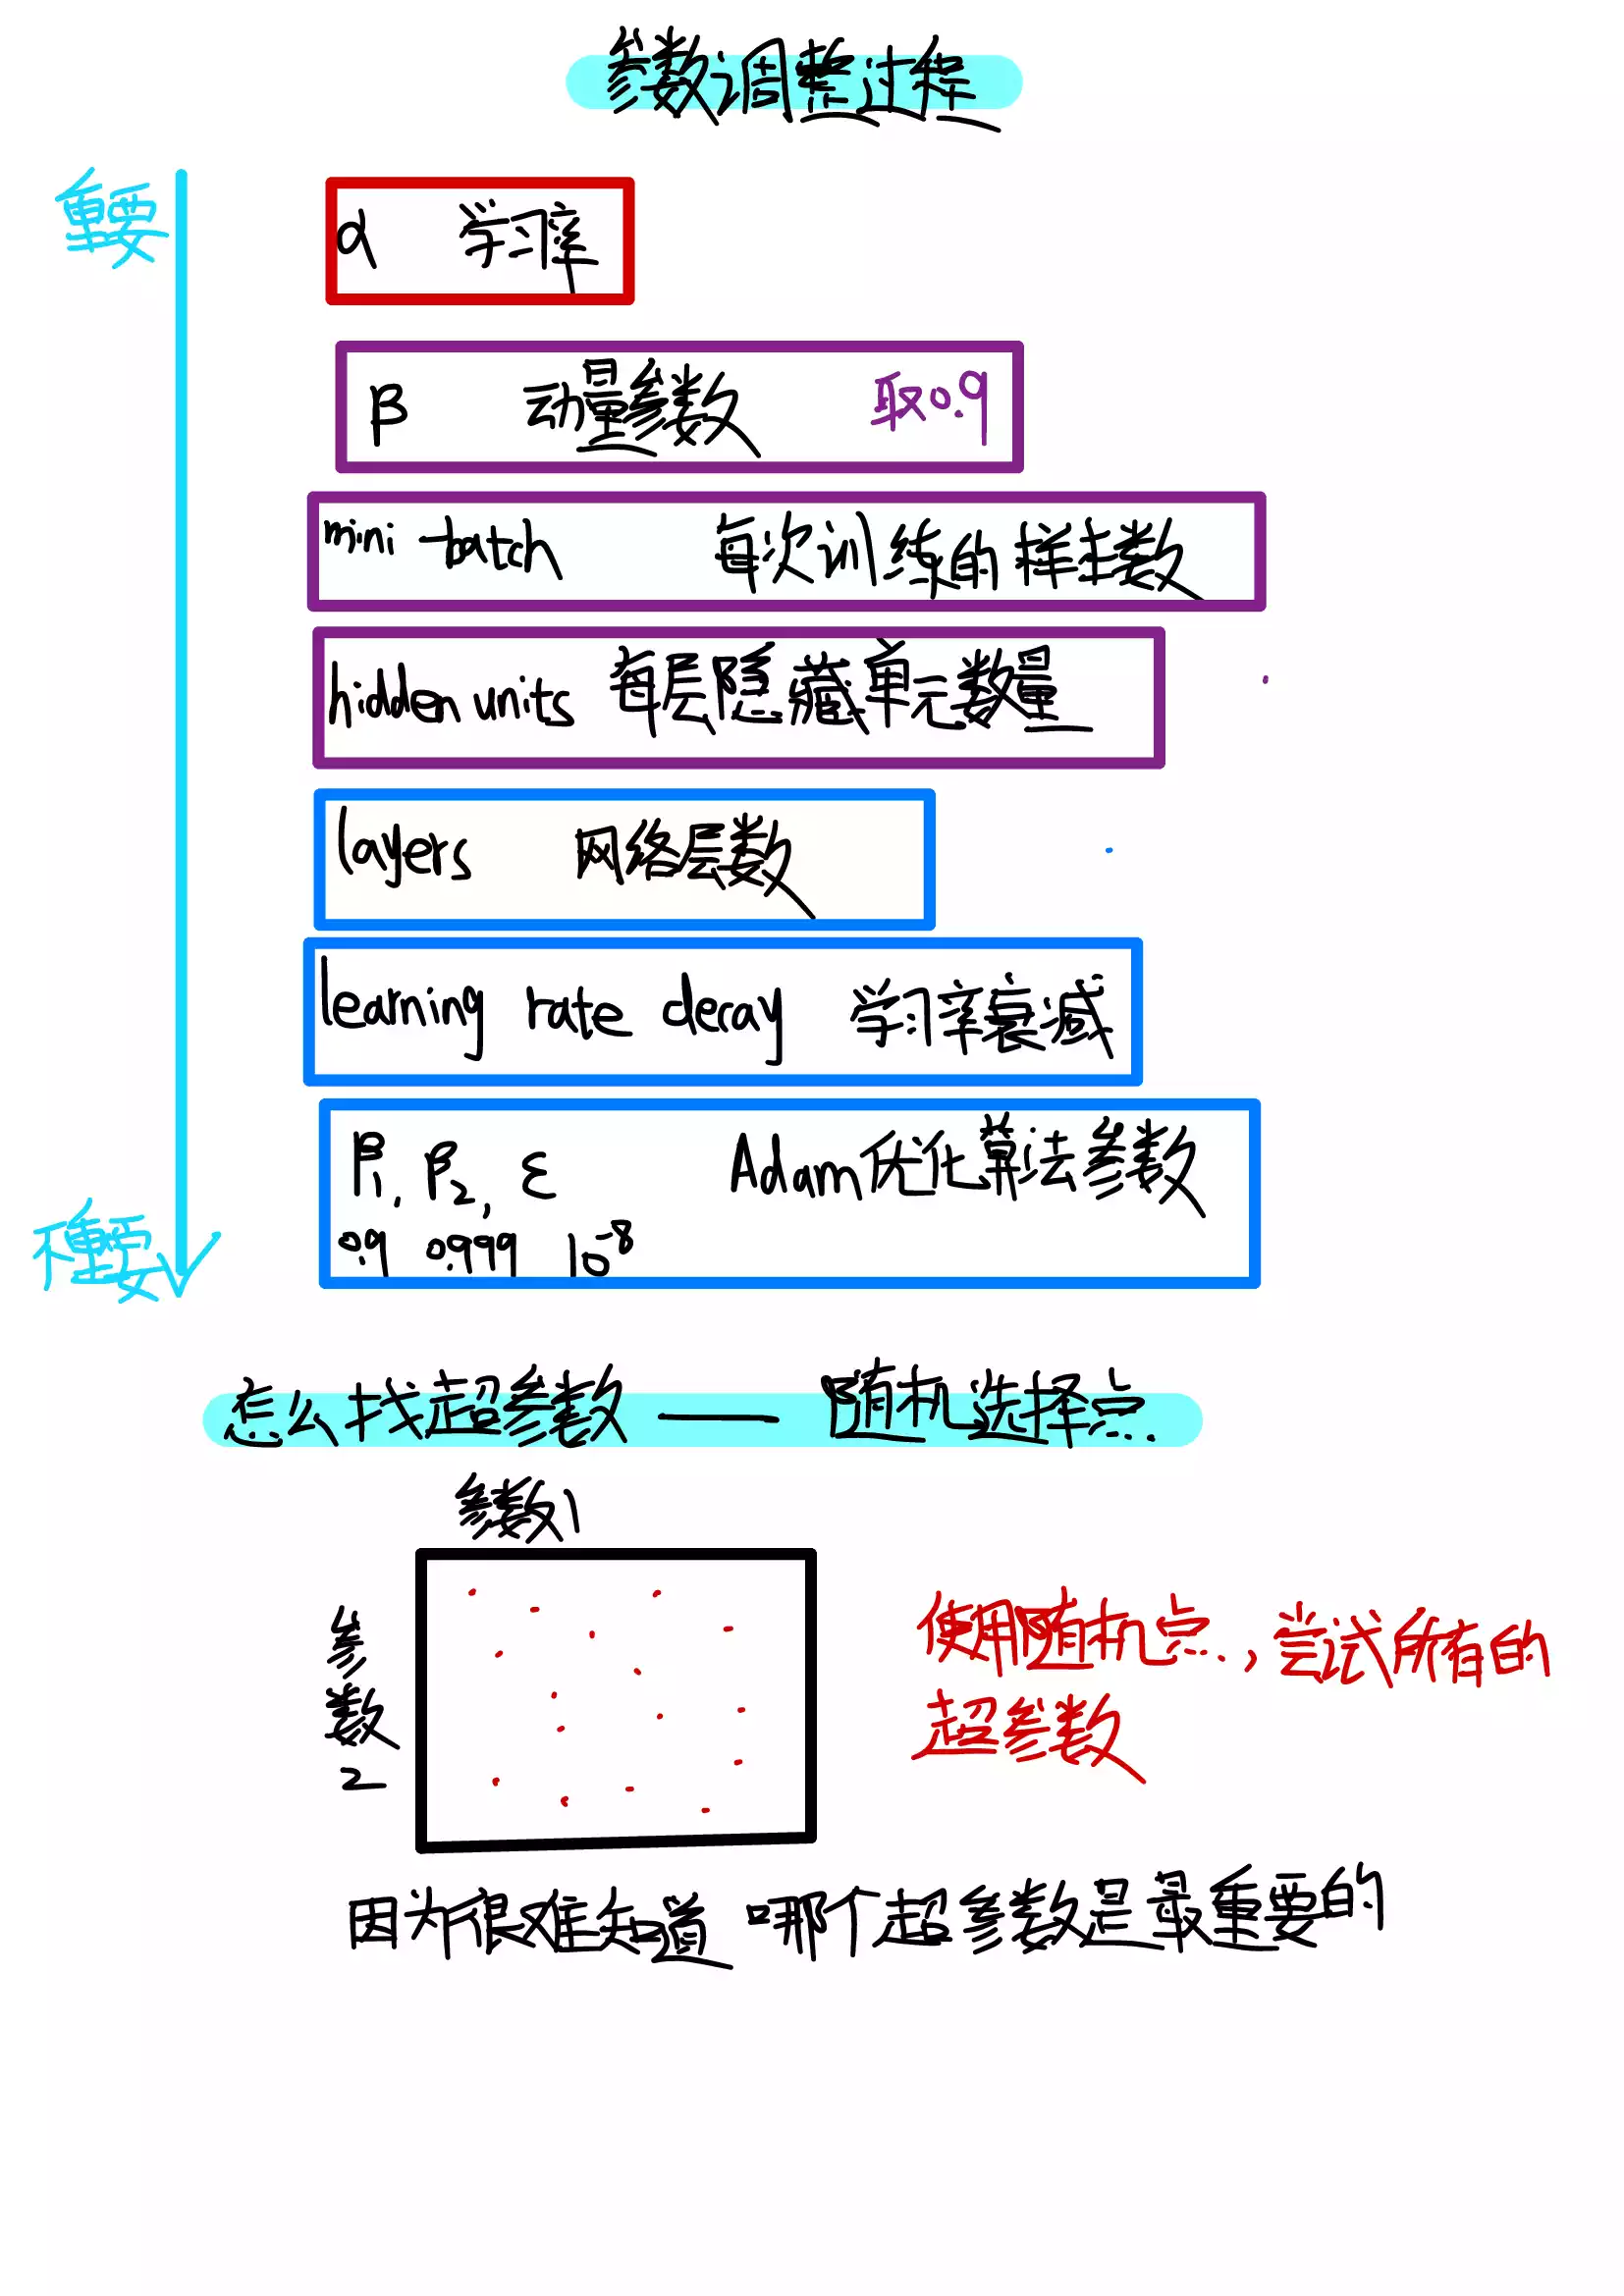 参数调整过程
重要
α 学习率
β 动量参数 取0.9
mini-batch 每次训练的样本数
hidden units 每层隐藏单元数量
layers 网络层数
learning rate decay 学习率衰减
β₁, β₂, ε Adam优化算法参数
0.9 0.999 10⁻⁸
不重要
怎么找超参数 —— 随机选择点
参数1
参数2
使用随机点,尝试所有的
超参数
因为很难知道 哪个超参数是最重要的